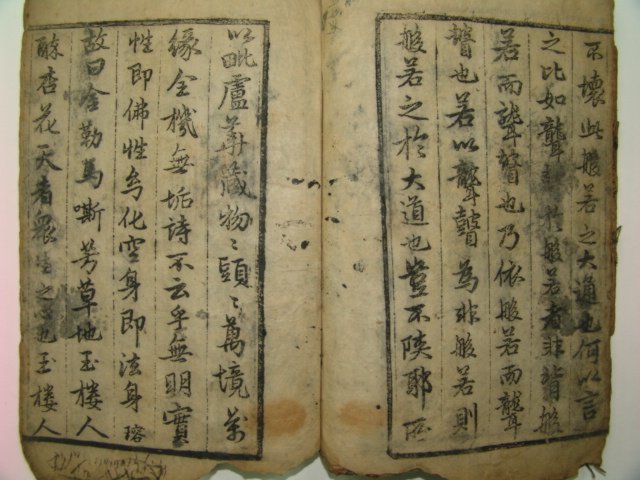 不壞此般若之大道也何以言
之比如聾非於般若者非瞽般
若而聾瞽也乃依般若而聾
瞽也若以聾瞽為非般若則
般若之於大道也豈不陜耶
所以毗盧華藏物〻頭〻萬境萬
緣全機無垢詩不云乎無明實
性即佛性幻化空身即法身瑢
故曰金勒馬嘶芳草地玉樓人
醉杏花天者衆生之也玉樓人